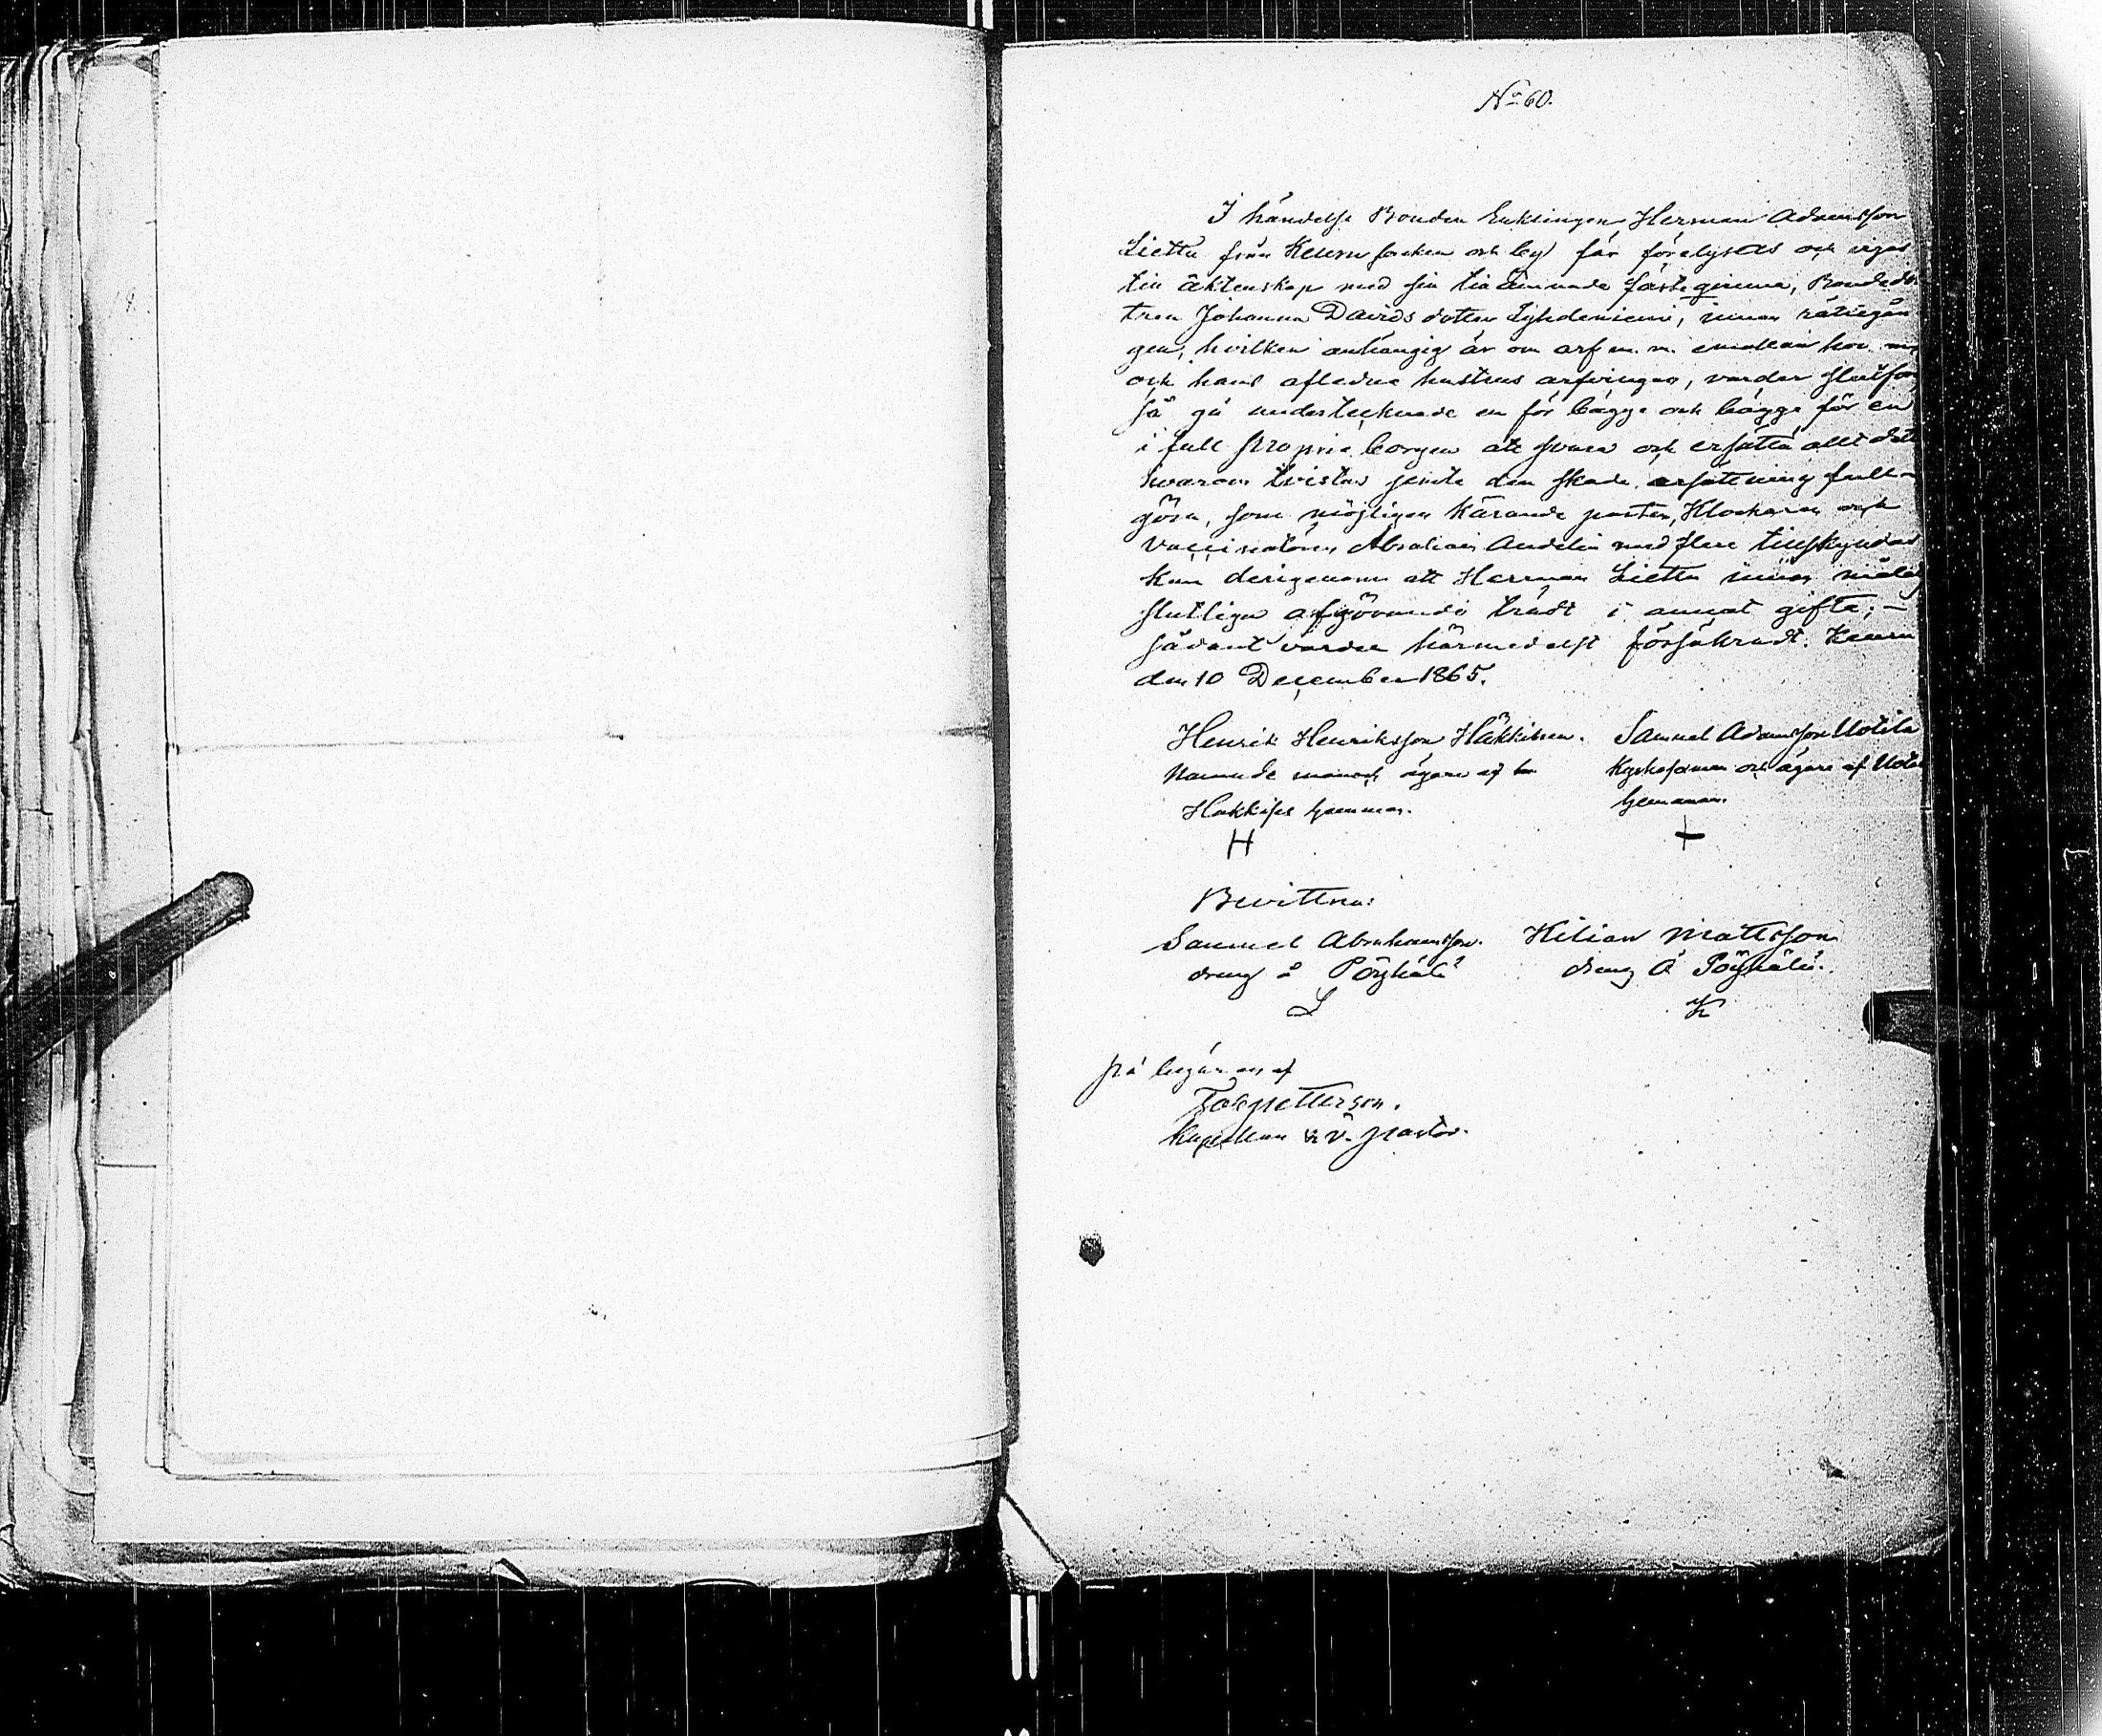 No 60.
I händelse Bonden Enklingen Herman Adamsson
Lietta från Keuru socken och by får förelysas och vigas
till äktenskap med sin tillämnade fästeqvinna, Bondedot
tren Johanna Davids dotter Lyhdeniemi, innan rättegån
gen, hvilken anhängig är om arf m. m. emellan ho-
och hans aflidne hustrus arfvingar, varder slut, so
så gå undertecknade en för bägge och bägge för en
i full proprie borgen att svara och ersätta allt det
hvarom tvistas jemte den skade ersättning full-
göra, som möjligen kärande parten, Klockaren och
Vaccinatören Abraham Andelin med flere tillskyndas
kan derigenom att Herman Lietta innan målets
slutliga afgörande trädt i annat gifte; —
sådant varder härmedelst försäkradt. Keuru
den 10 December 1865.
Henrik Henriksson Häkkinen. Samuel Adamsson Uotila
Nämndeman och ägare af Kyrkoförman och ägare af Uotila
Hakkiss hemman. hemman.
H +
Bevittna:
Samuel Abrahamsson. Kilian Mattsson
dreng å Pöyhälä dreng å Pöyhälä.
S K
på begäran af
Tob petterson.
Kapellan & v. pastor.